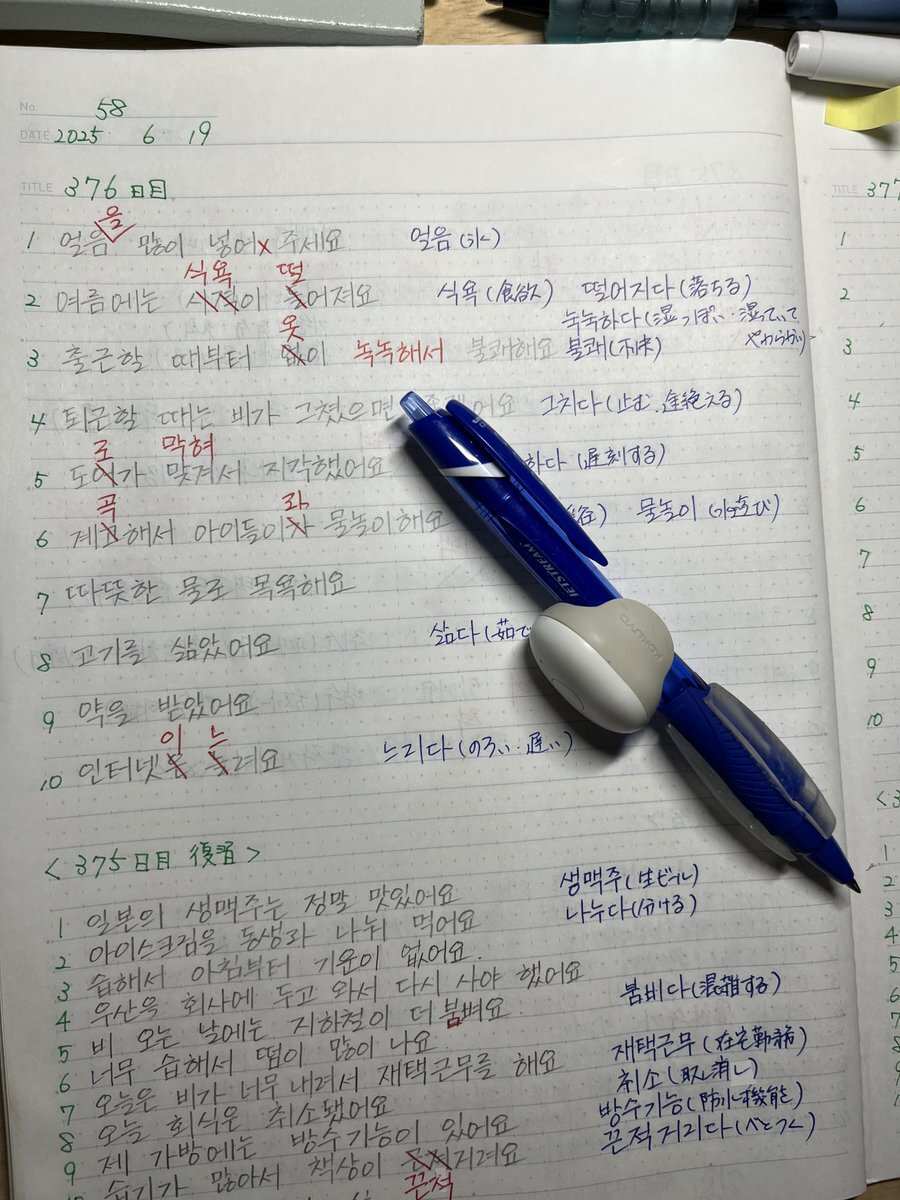 No. 58
DATE 2025 6 19
TITLE 376日目
을
1 얼음 많이 넣어x 주세요 얼음(氷)
식욕 떨
2 여름에는 이 어져요 식욕(食欲) 떨어지다(落ちる)
눅눅하다(湿っぽい・湿っていてやわらかい)
옷
3 출근할 때부터 없이 눅눅해서 불쾌해요 불쾌(不快)
4 퇴근할 때는 비가 그쳤으면 어요 그치다(止む、途絶える)
로 막혀
5 도어가 맞겨서 지각했어요 하다(遅刻する)
곡 과
6 계고해서 아이들이자 물놀이해요 谷) 물놀이(水遊び)
7 따뜻한 물로 목욕해요
8 고기를 삶았어요 삶다(茹で
9 약을 받았어요
이 느
10 인터넷은 려요 느리다(のろい・遅い)
<375日目 復習>
1 일본의 생맥주는 정말 맛있어요 생맥주(生ビール)
2 아이스크림을 동생과 나눠 먹어요 나누다(分ける)
3 습해서 아침부터 기운이 없어요.
4 우산을 회사에 두고 와서 다시 사야 했어요
5 비 오는 날에는 지하철이 더 붐벼요 붐비다(混雑する)
6 너무 습해서 땀이 많이 나요
7 오늘은 비가 너무 내려서 재택근무를 해요 재택근무(在宅勤務)
8 오늘 회식은 취소됐어요 취소(取消し)
9 제 가방에는 방수기능이 있어요 방수기능(防水機能)
습기가 많아서 책상이 거려요 끈적거리다(べとつく)
끈적
JETSTREAM
KOKUYO
TITLE 377
1
2
3
4
5
6
7
8
9
10
<3
1
2
3
4
5
6
7
8